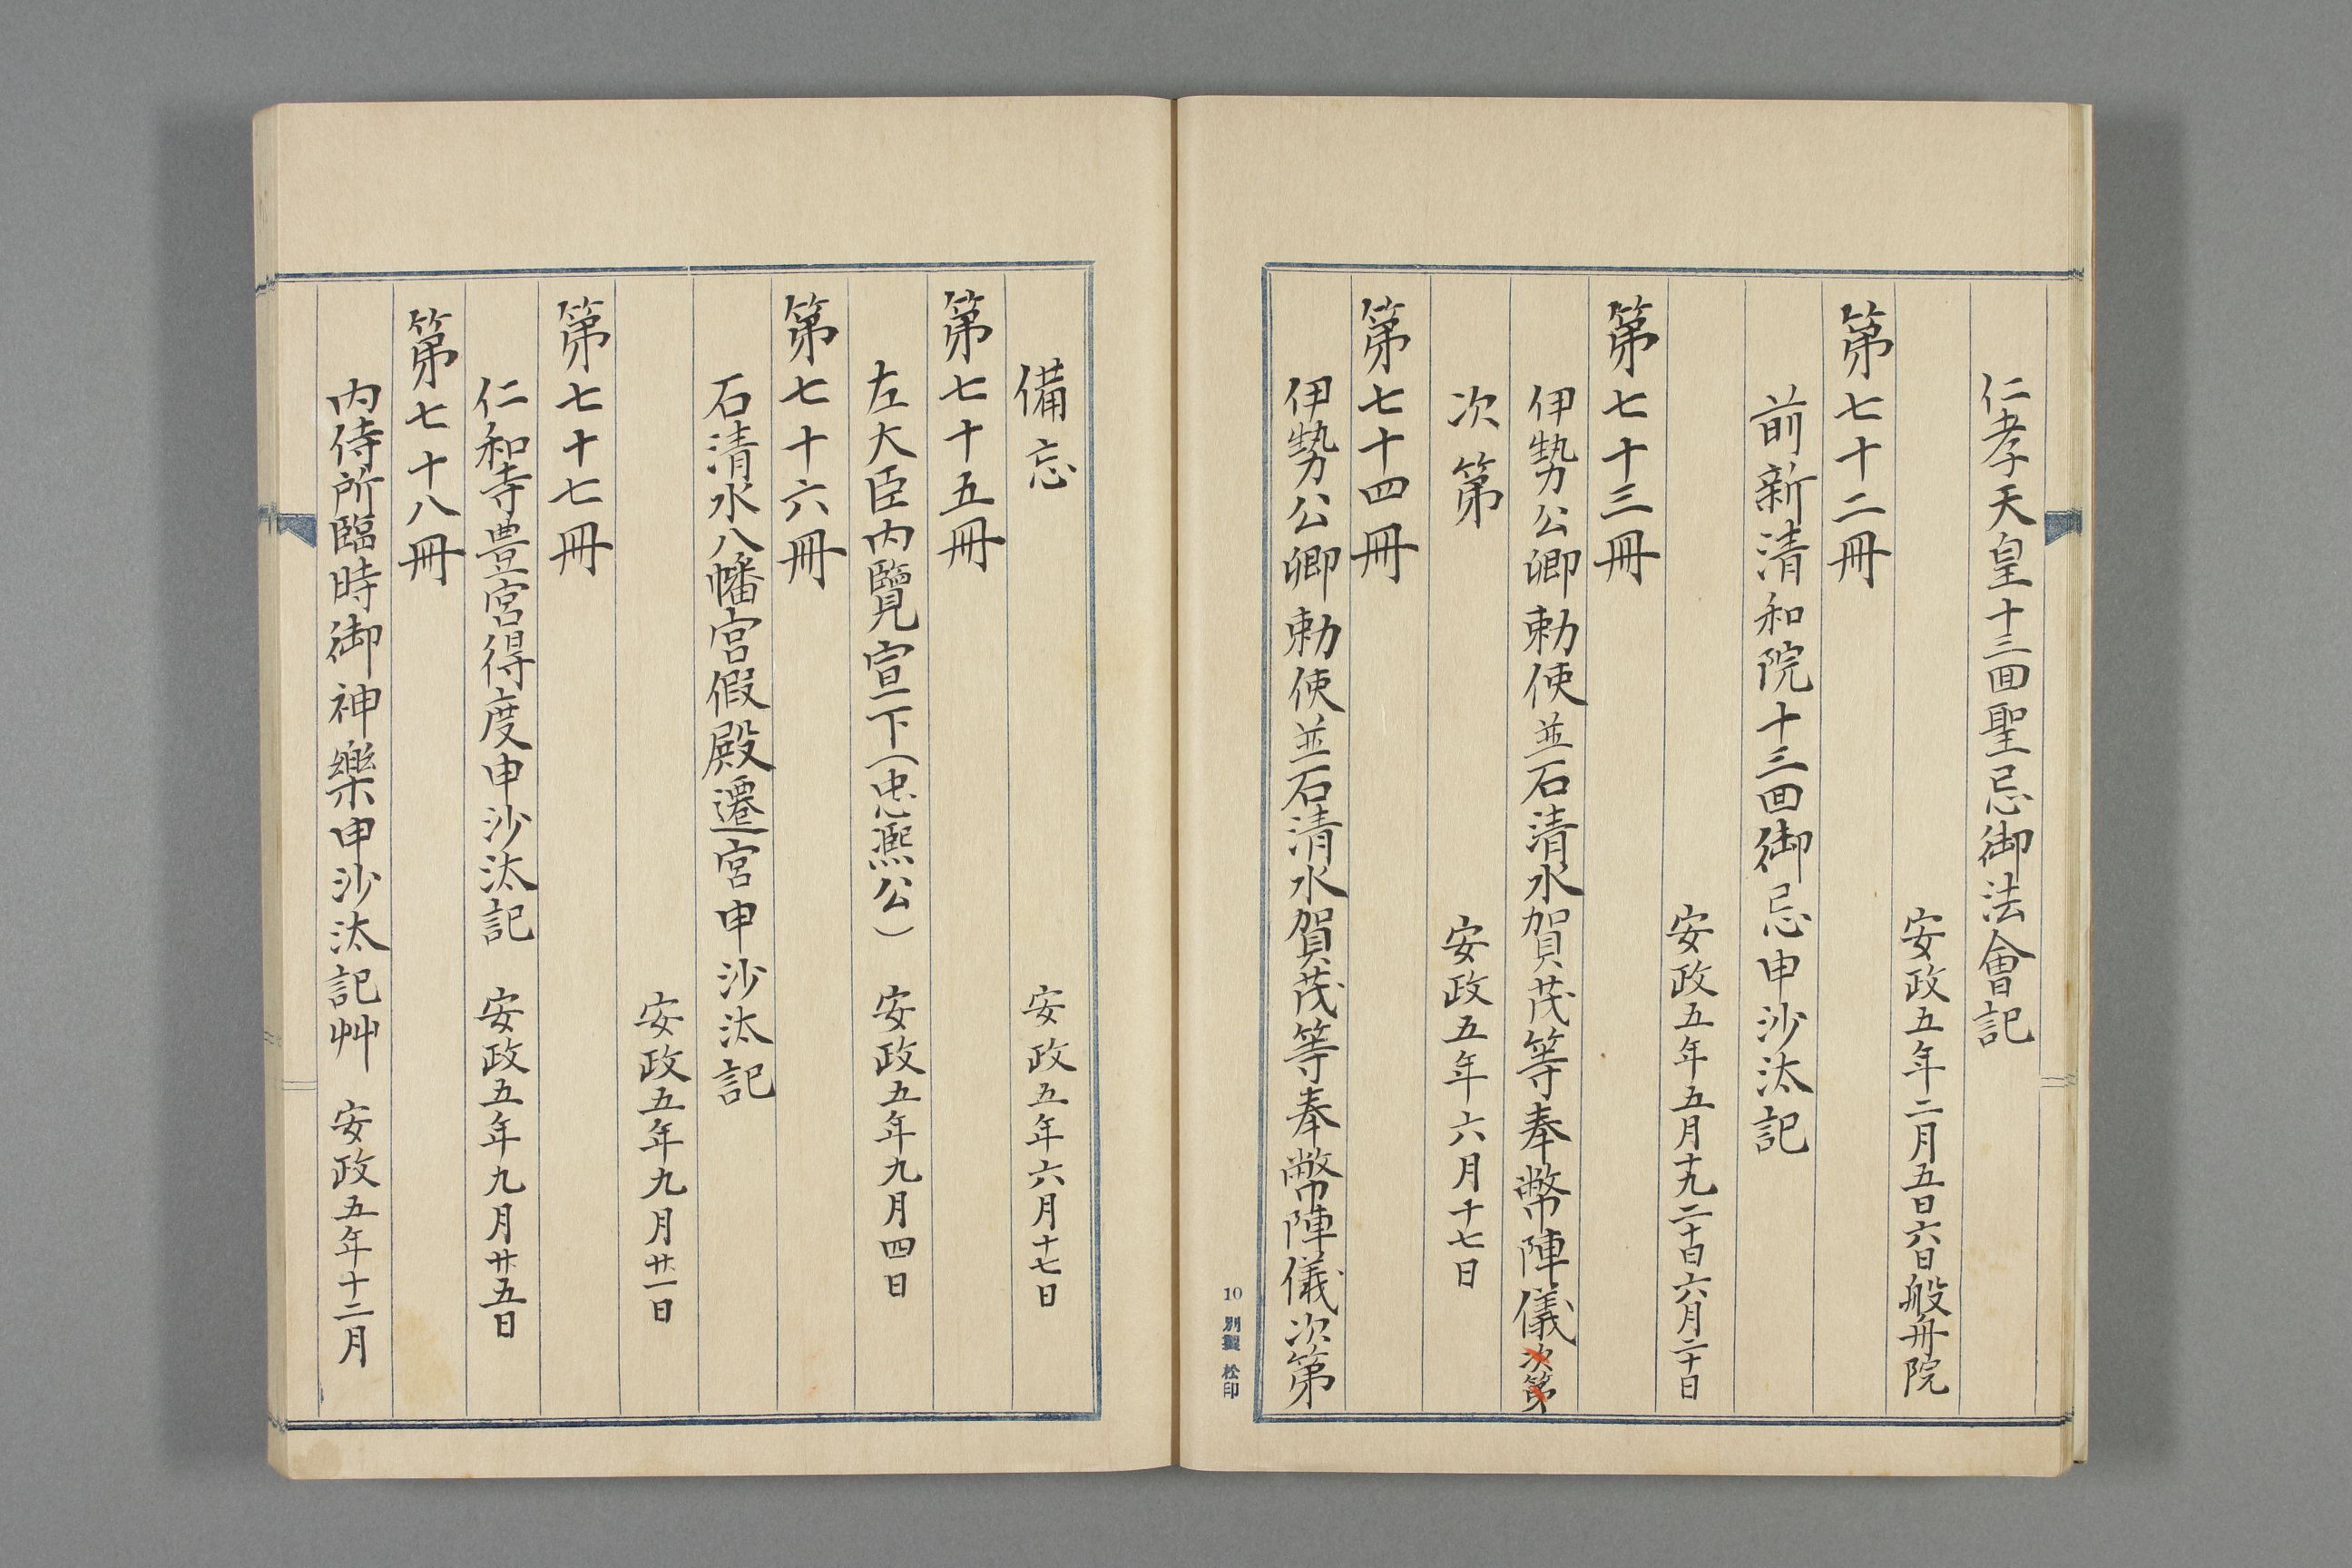 仁孝天皇十三回聖忌御法會記
安政五年二月五日六日般舟院
第七十二冊
前新清和院十三回御忌申沙汰記
安政五年五月十九二十日六月二十日
第七十三冊
伊勢公卿勅使並石清水賀茂等奉幣陣儀次第
次第
安政五年六月十七日
第七十四冊
伊勢公卿勅使並石清水賀茂等奉幣陣儀次第
10 別製 松印
備忘
安政五年六月十七日
第七十五冊
左大臣内覽宣下(忠熈公) 安政五年九月四日
第七十六冊
石清水八幡宮假殿遷宮申沙汰記
安政五年九月廿一日
第七十七冊
仁和寺豊宮得度申沙汰記 安政五年九月廿五日
第七十八冊
内侍所臨時御神樂申沙汰記艸 安政五年十二月